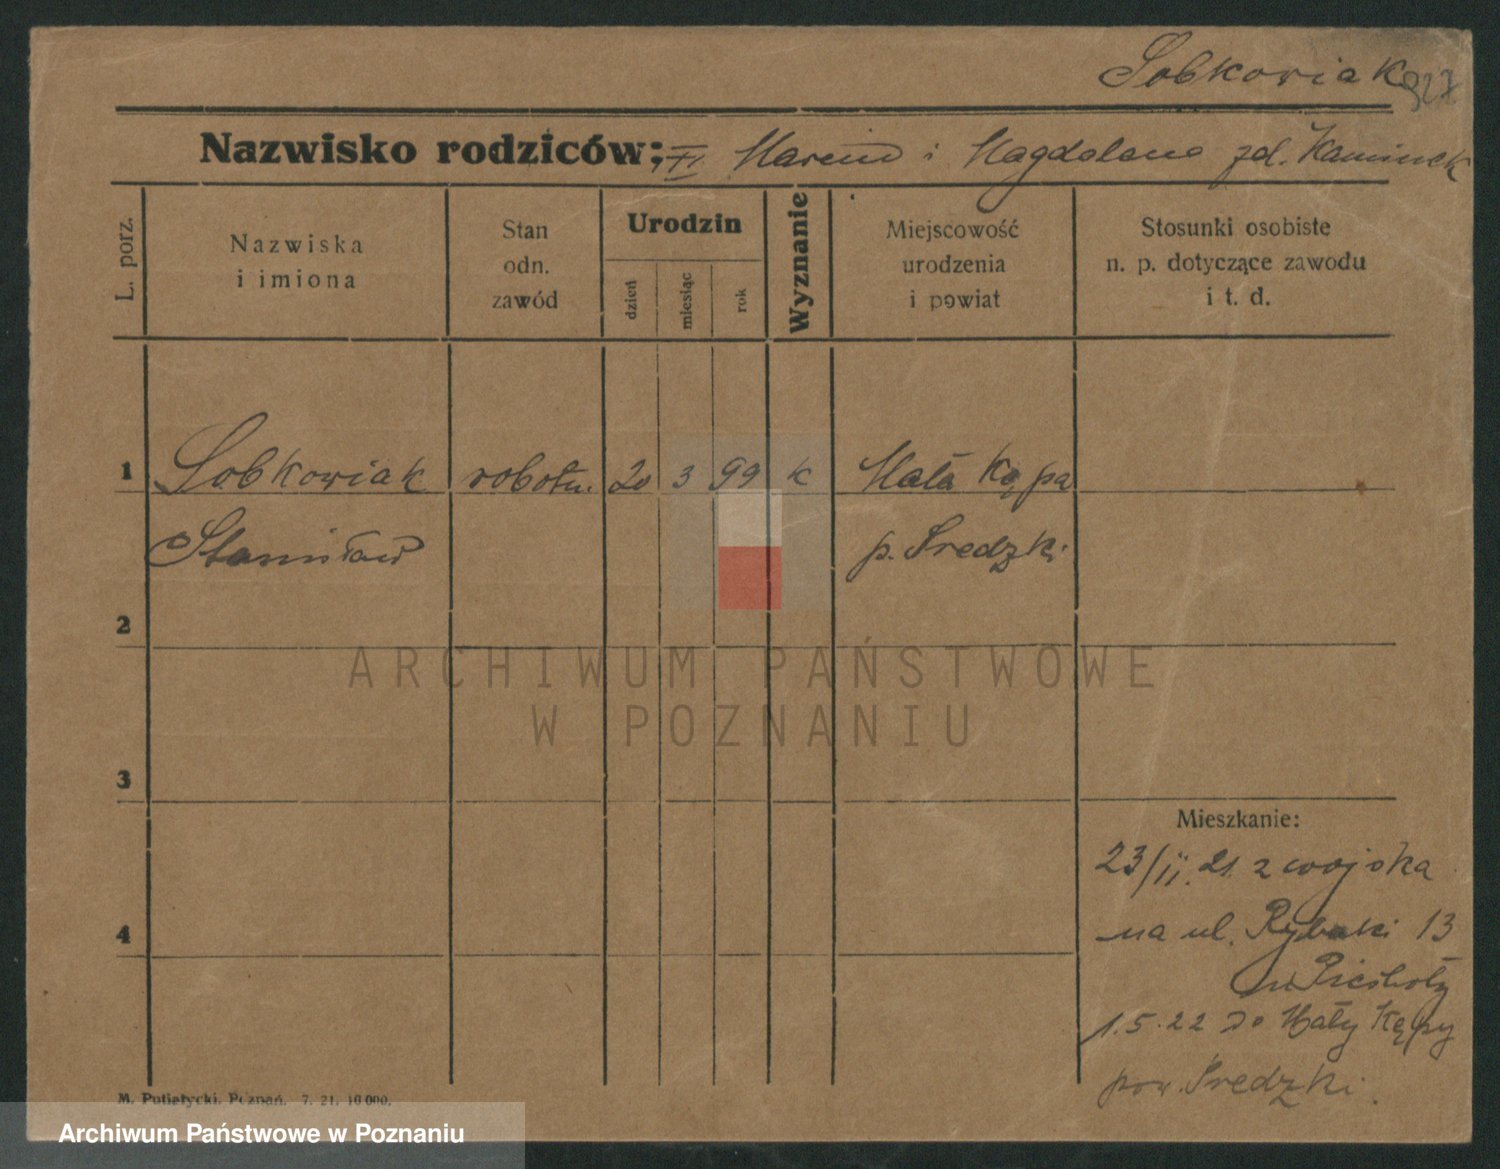 Sobkowiak
927
Nazwisko rodziców: Marcin i Magdalena zd. Kaminek
L. porz.
Nazwiska
i imiona
Stan
odn.
zawód
Urodzin
dzień
miesiąc
rok
Wyznanie
Miejscowość
urodzenia
i powiat
Stosunki osobiste
n. p. dotyczące zawodu
i t. d.
1 Sobkowiak robotn. 20 3 99 k Mała Kępa
Stanisław p. Średzki
2
ARCHIWUM PAŃSTWOWE
W POZNANIU
3
Mieszkanie:
23/II. 21. z wojska
4
na ul. Rybaki 13
1.5.22 do Mały Kępy
pow. Średzki.
M. Putiatycki, Poznań. 7. 21. 10 000.
Archiwum Państwowe w Poznaniu